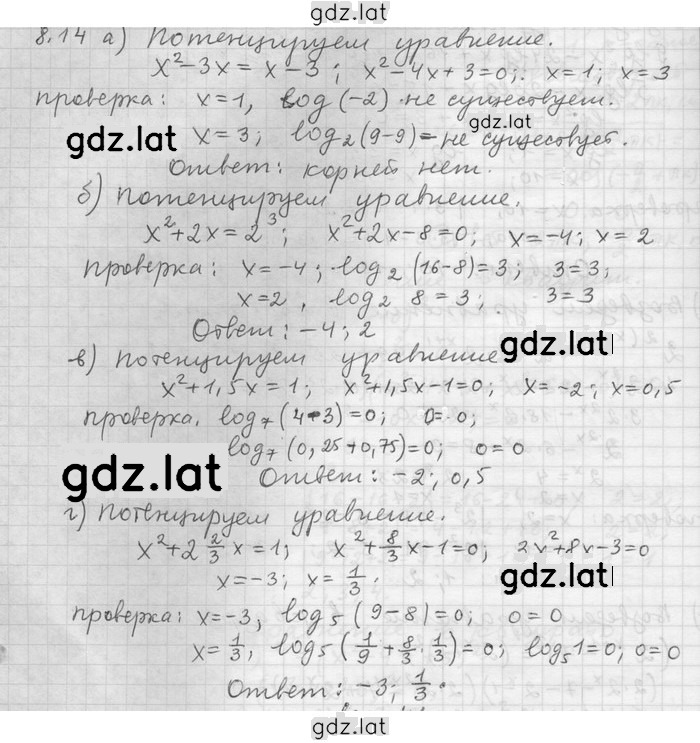 gdz.lat
8.14 а) Потенцируем уравнение.
x²-3x = x-3; x²-4x+3=0; x=1; x=3
проверка: x=1, log(-2) не существует.
gdz.lat
gdz.lat x=3; log₂(9-9)= не существует.
Ответ: корней нет.
б) потенцируем уравнение.
x²+2x=2³; x²+2x-8=0; x=-4; x=2
проверка: x=-4; log₂(16-8)=3; 3=3;
x=2, log₂ 8=3; 3=3
Ответ: -4; 2
в) потенцируем уравнение gdz.lat
x²+1,5x=1; x²+1,5x-1=0; x=-2; x=0,5
проверка. log₇(4-3)=0; 0=0;
log₇(0,25+0,75)=0; 0=0
gdz.lat Ответ: -2; 0,5
г) потенцируем уравнение.
x²+2 2/3 x=1; x²+8/3 x-1=0; 2x²+8x-3=0
x=-3; x=1/3. gdz.lat
проверка: x=-3, log₅(9-8)=0; 0=0
x=1/3, log₅(1/9+8/3·1/3)=0; log₅1=0; 0=0
Ответ: -3; 1/3.
gdz.lat